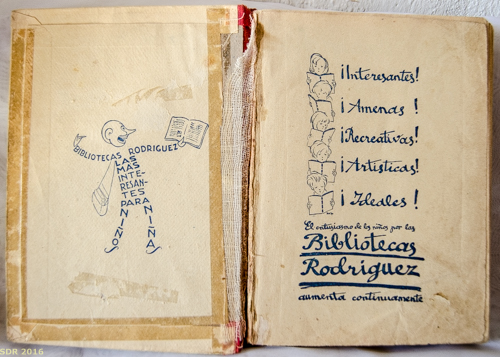 BIBLIOTECAS RODRIGUEZ
LAS
MÁS
INTE-
RESAN-
TES
PARA
NIÑOS
NIÑA
¡Interesantes!
¡Amenas!
¡Recreativas!
¡Artísticas!
¡Ideales!
El entusiasmo de los niños por las
Bibliotecas
Rodríguez
aumenta continuamente
SDR 2016